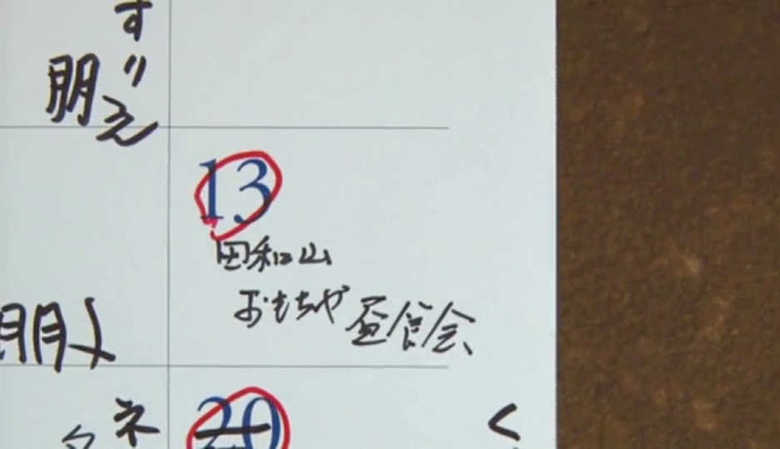 すりえ
朋
13
田和山
おもちゃ昼食会
朋
ネ
20
く